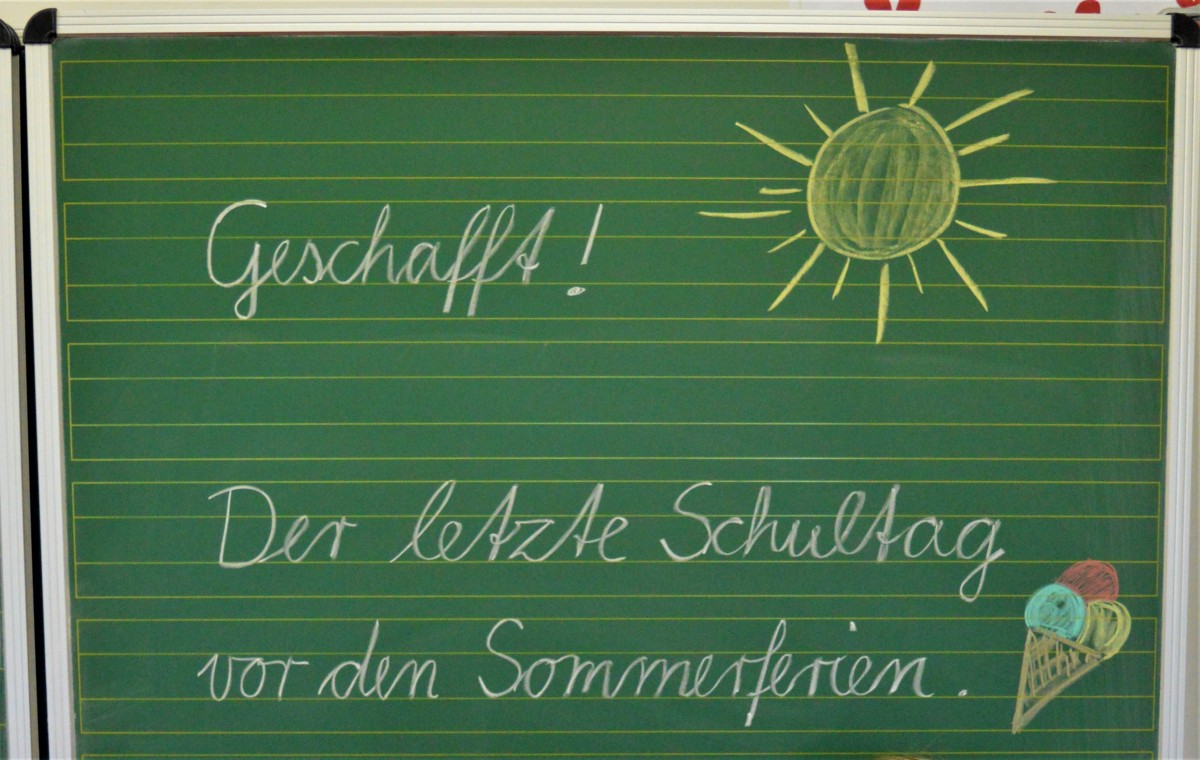 Geschafft!
Der letzte Schultag
vor den Sommerferien.